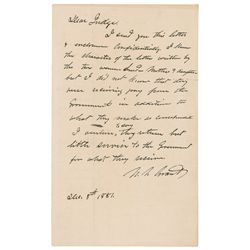 Dear Judge,
I send you this letter
& enclosure Confidentially. I know
the character of the letter written by
the two women and Mother & daughter
but I did not know that they
were receiving pay from the
Government in addition to
what they make as
to say
I believe, they return but
little service to the Government
for what they receive
U. S. Grant
Dec. 8th 1881.